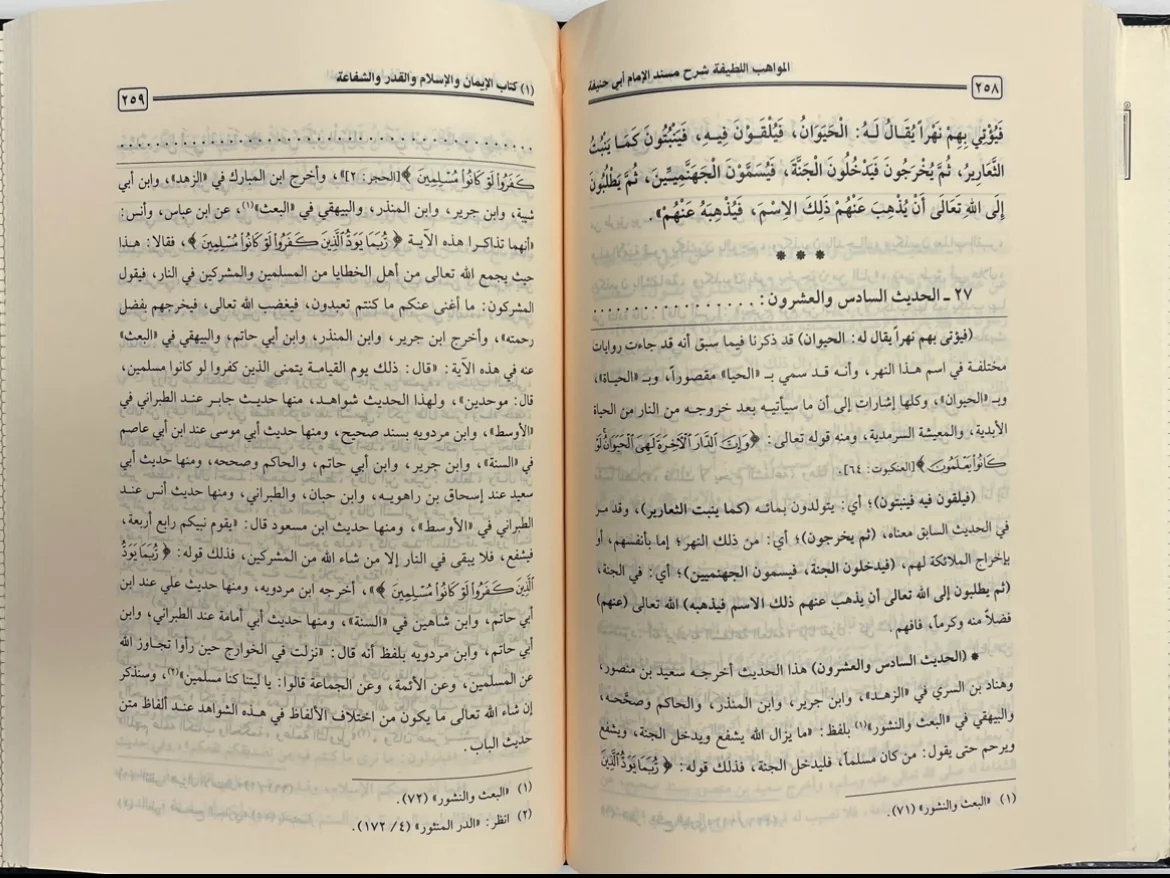 المواهب اللطيفة شرح مسند الإمام أبي حنيفة
٢٥٨
فَيُؤْتِي بِهِمْ نَهْراً يُقَالُ لَهُ: الْحَيَوَانُ، فَيُلْقَوْنَ فِيهِ، فَيَنْبُتُونَ كَمَا يَنْبُتُ
الثَّعَارِيرُ، ثُمَّ يُخْرَجُونَ فَيَدْخُلُونَ الْجَنَّةَ، فَيُسَمَّوْنَ الْجَهَنَّمِيِّينَ، ثُمَّ يَطْلُبُونَ
إِلَى اللهِ تَعَالَى أَنْ يُذْهِبَ عَنْهُمْ ذَلِكَ الاِسْمَ، فَيُذْهِبَهُ عَنْهُمْ».
* * *
٢٧ ـ الحديث السادس والعشرون: . . . . . . . . . . . . . . . . .
(فيؤتى بهم نهراً يقال له: الحيوان) قد ذكرنا فيما سبق أنه قد جاءت روايات
مختلفة في اسم هذا النهر، وأنه قد سمي بـ «الحيا» مقصوراً، وبـ «الحياة»،
وبـ «الحيوان»، وكلها إشارات إلى أن ما سيأتيه بعد خروجه من النار من الحياة
الأبدية، والمعيشة السرمدية، ومنه قوله تعالى: ﴿وَإِنَّ الدَّارَ الْآخِرَةَ لَهِيَ الْحَيَوَانُ لَوْ
كَانُوا يَعْلَمُونَ﴾[العنكبوت: ٦٤].
(فيلقون فيه فينبتون)؛ أي: يتولدون بمائه (كما ينبت الثعارير)، وقد مر
في الحديث السابق معناه، (ثم يخرجون)؛ أي: من ذلك النهر؛ إما بأنفسهم، أو
بإخراج الملائكة لهم، (فيدخلون الجنة، فيسمون الجهنميين)؛ أي: في الجنة،
(ثم يطلبون إلى الله تعالى أن يذهب عنهم ذلك الاسم فيذهبه) الله تعالى (عنهم)
فضلاً منه وكرماً، فافهم.
* (الحديث السادس والعشرون) هذا الحديث أخرجه سعيد بن منصور،
وهناد بن السري في «الزهد»، وابن جرير، وابن المنذر، والحاكم وصحَّحه،
والبيهقي في «البعث والنشور»(١) بلفظ: «ما يزال الله يشفع ويدخل الجنة، ويشفع
ويرحم حتى يقول: من كان مسلماً، فليدخل الجنة، فذلك قوله: ﴿رُّبَمَا يَوَدُّ الَّذِينَ
(١) «البعث والنشور» (٧١).
(١) كتاب الإيمان والإسلام والقدر والشفاعة
٢٥٩
. . . . . . . . . . . . . . . . . . . . . . . . . . . . . . . . . . . . . . . . . .
كَفَرُوا لَوْ كَانُوا مُسْلِمِينَ﴾[الحجر: ٢]»، وأخرج ابن المبارك في «الزهد»، وابن أبي
شيبة، وابن جرير، وابن المنذر، والبيهقي في «البعث»(١)، عن ابن عباس، وأنس:
«أنهما تذاكرا هذه الآية ﴿رُّبَمَا يَوَدُّ الَّذِينَ كَفَرُوا لَوْ كَانُوا مُسْلِمِينَ﴾، فقالا: هذا
حيث يجمع الله تعالى من أهل الخطايا من المسلمين والمشركين في النار، فيقول
المشركون: ما أغنى عنكم ما كنتم تعبدون، فيغضب الله تعالى، فيخرجهم بفضل
رحمته»، وأخرج ابن جرير، وابن المنذر، وابن أبي حاتم، والبيهقي في «البعث»
عنه في هذه الآية: «قال: ذلك يوم القيامة يتمنى الذين كفروا لو كانوا مسلمين،
قال: موحدين»، ولهذا الحديث شواهد، منها حديث جابر عند الطبراني في
«الأوسط»، وابن مردويه بسند صحيح، ومنها حديث أبي موسى عند ابن أبي عاصم
في «السنة»، وابن جرير، وابن أبي حاتم، والحاكم وصححه، ومنها حديث أبي
سعيد عند إسحاق بن راهويه، وابن حبان، والطبراني، ومنها حديث أنس عند
الطبراني في «الأوسط»، ومنها حديث ابن مسعود قال: «يقوم نبيكم رابع أربعة،
فيشفع، فلا يبقى في النار إلا من شاء الله من المشركين، فذلك قوله: ﴿رُّبَمَا يَوَدُّ
الَّذِينَ كَفَرُوا لَوْ كَانُوا مُسْلِمِينَ﴾»، أخرجه ابن مردويه، ومنها حديث علي عند ابن
أبي حاتم، وابن شاهين في «السنة»، ومنها حديث أبي أمامة عند الطبراني، وابن
أبي حاتم، وابن مردويه بلفظ أنه قال: «نزلت في الخوارج حين رأوا تجاوز الله
عن المسلمين، وعن الأئمة، وعن الجماعة قالوا: يا ليتنا كنا مسلمين»(٢)، وسنذكر
إن شاء الله تعالى ما يكون من اختلاف الألفاظ في هذه الشواهد عند ألفاظ متن
حديث الباب.
(١) «البعث والنشور» (٧٢).
(٢) انظر: «الدر المنثور» (٤/ ١٧٢).